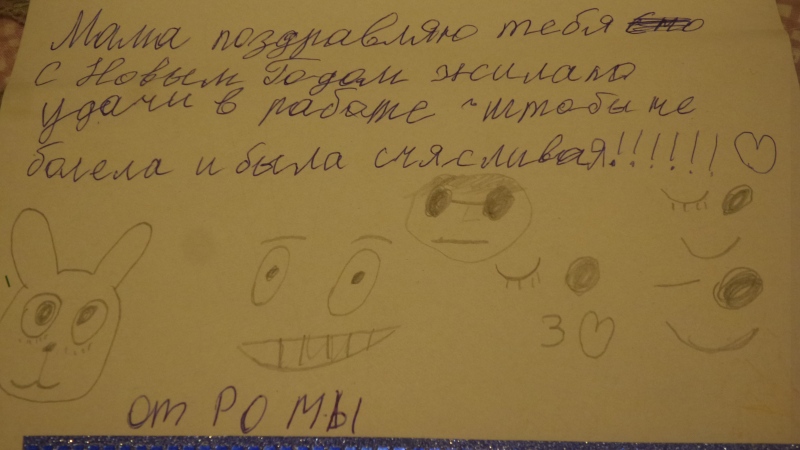 Мама поздравляю тебя
С Новым Годом жилаю
удачи в работе чтобы не
болела и была счясливая!!!!!!!
З
от РОМЫ